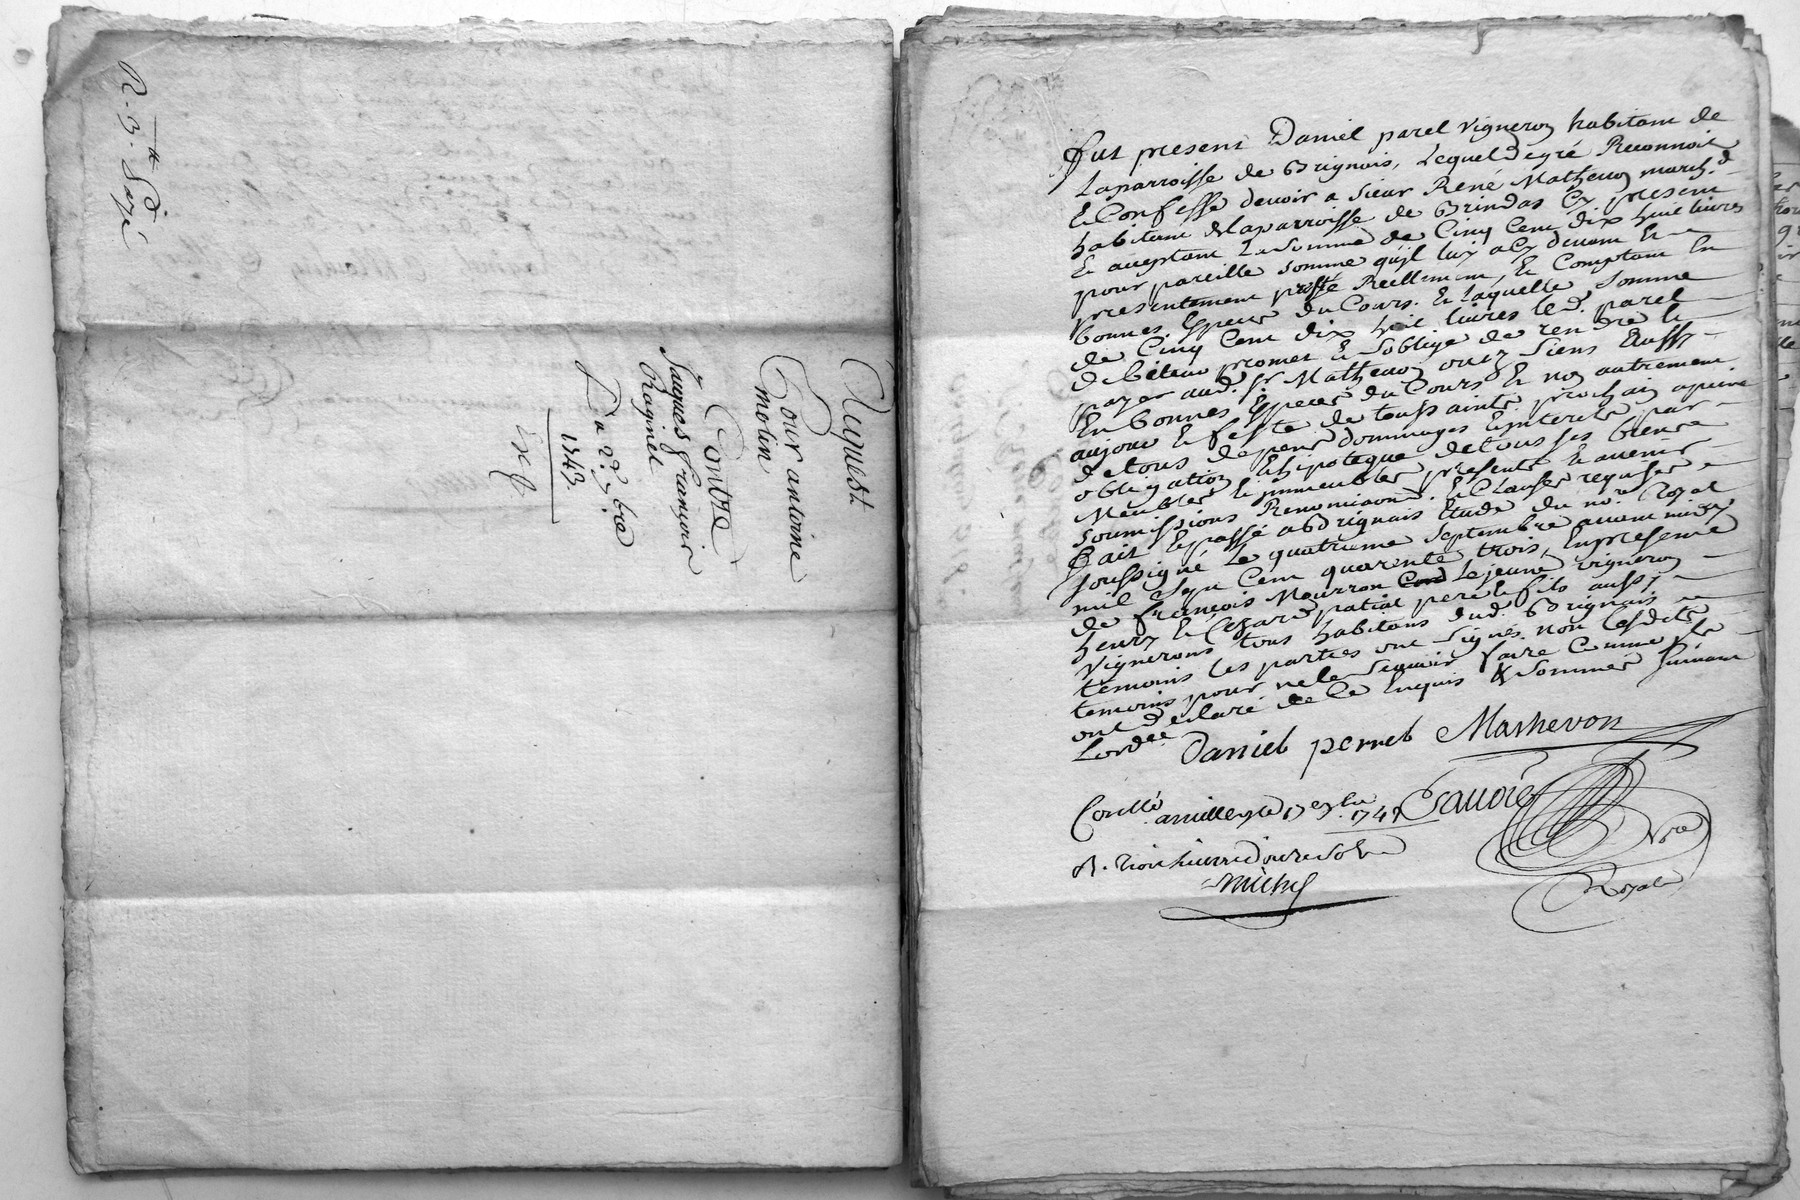 Requeste
Pour antoine
molin
Contre
Jacques françois
Raginel
Du 2e xbre
1743
fut present Daniel parel vigneron habitant de
Laparroisse de Brignais, Lequel degré Reconnoit
Et Confesse devoir a sieur René Mathevon march.d
habitant de Laparroisse de Brindas Cy present
Et aceptant La somme de Cinq Cent dix huit livres
pour pareille somme qu'jl luy a Cy devant Et
presentement presté Reellement, Et Comptant En
bonnes Especes du Cours. Et Laquelle somme
de Cinq Cent dix huit livres led. parel
debiteur promet Et soblige de rendre Et
payer aud. sr Mathevon ou ez siens Aussy
En bonnes Especes du Cours Et non autrement
aujour Et feste de toussaints prochain apeine
de tous depens dommages Interets par
obligation Et hipoteque de tous ses biens
Meubles Et immeubles presents Et avenir
soumissions Renonciaons. Et Clauses requises
fait Et passé a Brignais Etude du no.re Royal
soussigné Le quatrieme septembre avant midy
mil sept Cent quarente trois, En presence
de françois Mourron Lejeune vigneron
henry Et Cezard patial pere Et fils aussy
vignerons tous habitans dud. Brignais
temoins Les parties ont signés. non Lesdits
temoins pour ne le sçavoir faire Comme jls
ont declaré de Ce Enquis & sommés suivant
Lord.ce
Daniel perret Mathevon
Con.llé amillery le 17e 7bre 1743
Nore
Royal
R. trois livres douze sols